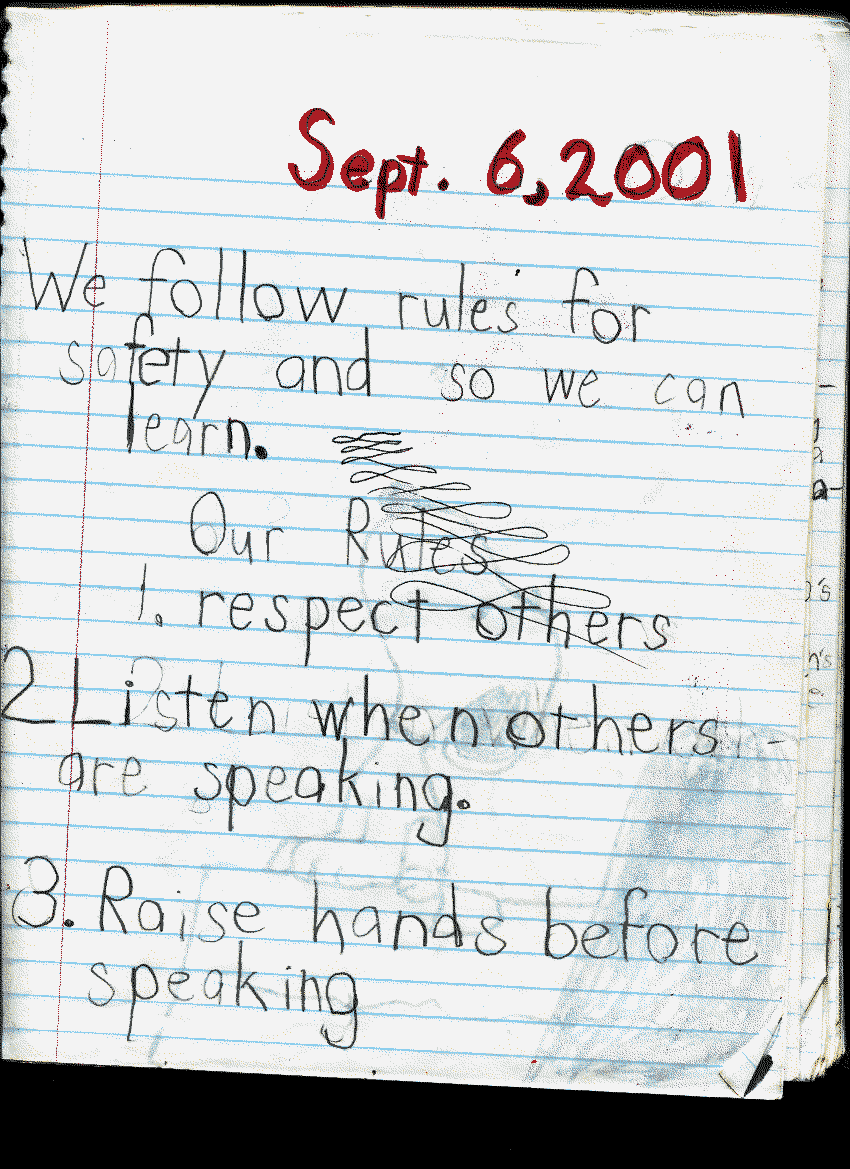 Sept. 6, 2001
We follow rules for
safety and so we can
learn.
Our Rules
1. respect others
2 Listen when others
are speaking.
3. Raise hands before
speaking